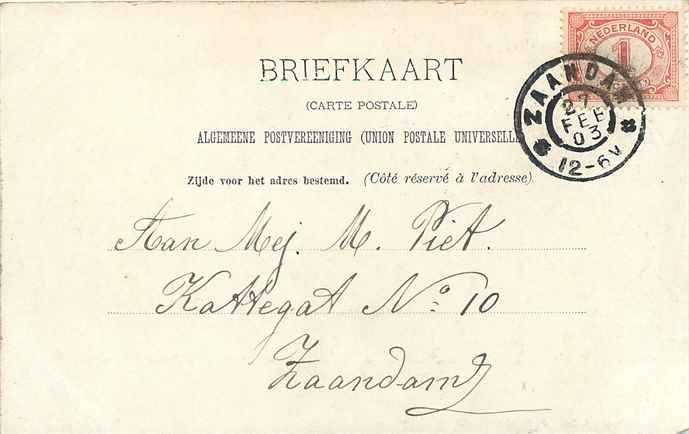 NEDERLAND
1
ZAANDAM
27
FEB
03
12-6V
BRIEFKAART
(CARTE POSTALE)
ALGEMEENE POSTVEREENIGING (UNION POSTALE UNIVERSELLE
Zijde voor het adres bestemd. (Côté réservé à l'adresse)
Aan Mej. M. Piet.
Kattegat No 10
Zaandam